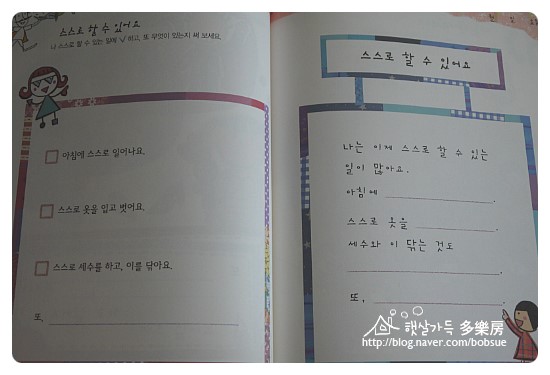 스스로 할 수 있어요
나 스스로 할 수 있는 일에 V 하고, 또 무엇이 있는지 써 보세요.
아침에 스스로 일어나요.
스스로 옷을 입고 벗어요.
스스로 세수를 하고, 이를 닦아요.
또,
스스로 할 수 있어요
나는 이제 스스로 할 수 있는
일이 많아요.
아침에 .
스스로 옷을 .
세수와 이 닦는 것도
.
또, .
햇살가득 多樂房
http://blog.naver.com/bobsue